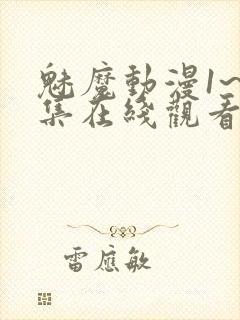 魅魔動漫1~
集在綫觀看
雷應敏